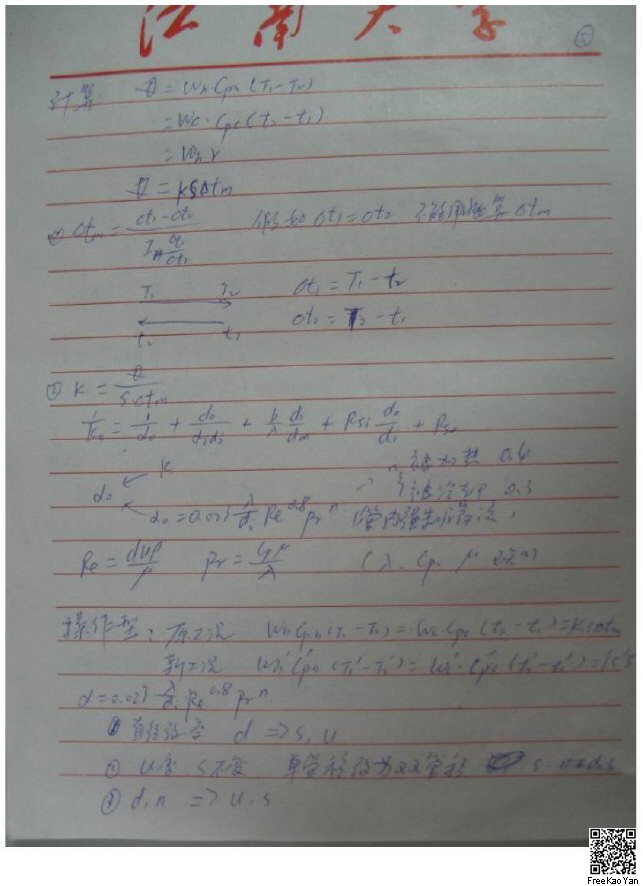 江南大学 ⑤
计算: Q = Wh Cph (T1-T2)
= Wc·Cpc (t2-t1)
= Wh r
Q = KSΔtm
① Δtm = (Δt1-Δt2)/(ln Δt1/Δt2) Δt1=Δt2 Δtm
T1 T2 Δt1 = T1-t2
t2 t1 Δt2 = T2-t1
② K = Q/(S·Δtm)
1/Ko = 1/αo + do/(αidi) + b/λ do/dm + Rsi do/di + Rso
K n 被加热 0.4
αo 被冷却 0.3
αo = 0.023 λ/di Re^0.8 Pr^n 管内强制
Re = duρ/μ Pr = Cpμ/λ (λ、Cp、μ
操作型: 原工况 Wh Cph (T1-T2) = Wc·Cpc (t2-t1) = KSΔtm
新工况 Wh' Cph (T1'-T2') = Wc' Cpc (t2'-t1') = K'S
α = 0.023 λ/di Re^0.8 Pr^n
① d => S, u
② u变 S不变 单管程改为双管程 S=
③ d, n => u, S
FreeKaoYan